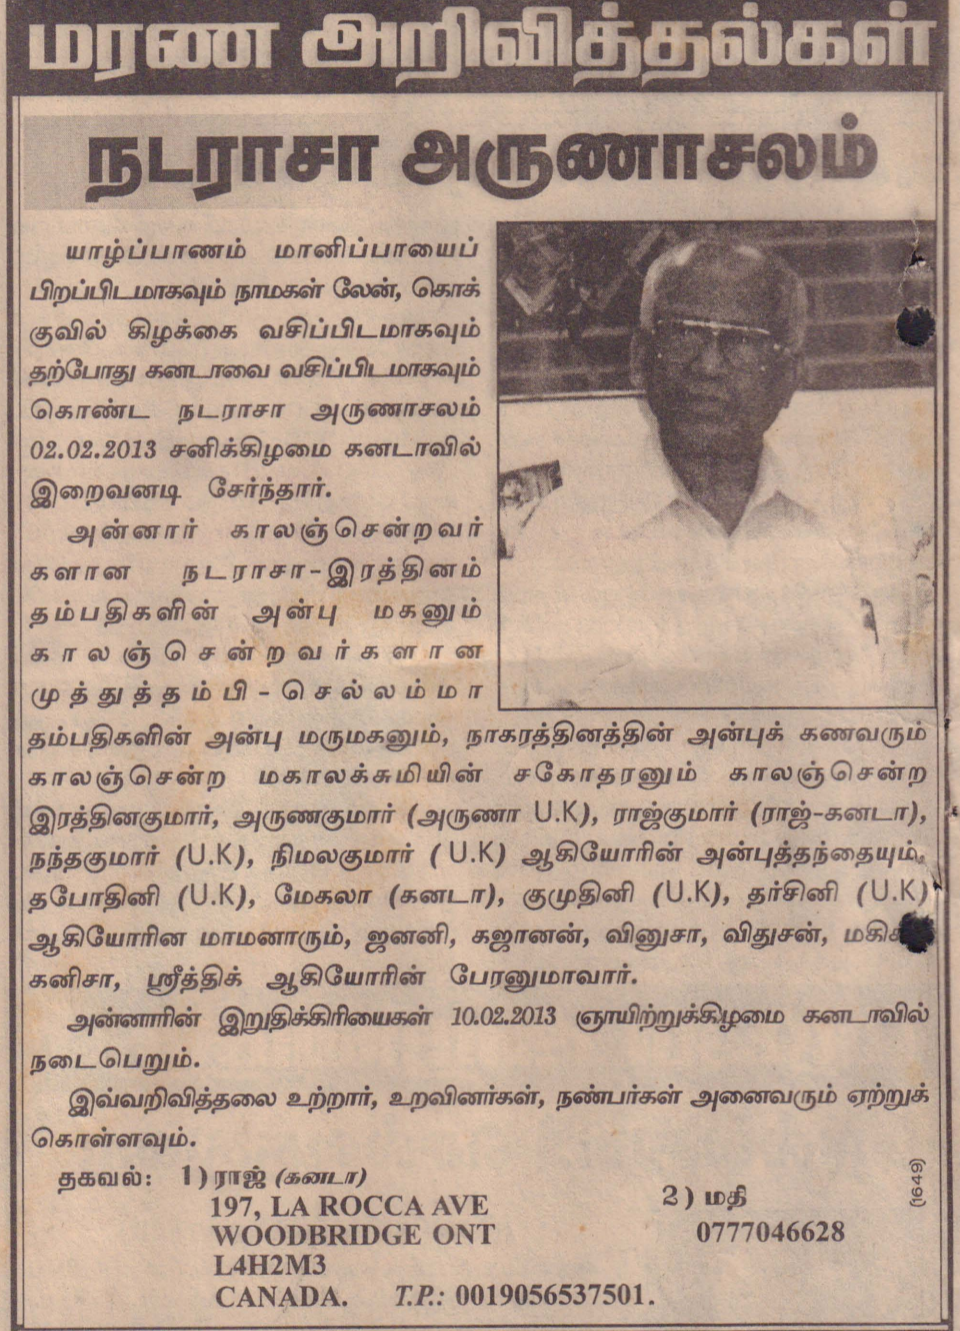 மரண அறிவித்தல்கள்
நடராசா அருணாசலம்
யாழ்ப்பாணம் மானிப்பாயைப்
பிறப்பிடமாகவும் நாமகள் லேன், கொக்
குவில் கிழக்கை வசிப்பிடமாகவும்
தற்போது கனடாவை வசிப்பிடமாகவும்
கொண்ட நடராசா அருணாசலம்
02.02.2013 சனிக்கிழமை கனடாவில்
இறைவனடி சேர்ந்தார்.
அன்னார் காலஞ்சென்றவர்
களான நடராசா-இரத்தினம்
தம்பதிகளின் அன்பு மகனும்
காலஞ்சென்றவர்களான
முத்துத்தம்பி - செல்லம்மா
தம்பதிகளின் அன்பு மருமகனும், நாகரத்தினத்தின் அன்புக் கணவரும்
காலஞ்சென்ற மகாலக்சுமியின் சகோதரனும் காலஞ்சென்ற
இரத்தினகுமார், அருணகுமார் (அருணா U.K), ராஜ்குமார் (ராஜ்-கனடா),
நந்தகுமார் (U.K), நிமலகுமார் ( U.K) ஆகியோரின் அன்புத்தந்தையும்,
தபோதினி (U.K), மேகலா (கனடா), குமுதினி (U.K), தர்சினி (U.K)
ஆகியோரின மாமனாரும், ஜனனி, கஜானன், வினுசா, விதுசன்,
கனிசா, ஸ்ரீத்திக் ஆகியோரின் பேரனுமாவார்.
அன்னாரின் இறுதிக்கிரியைகள் 10.02.2013 ஞாயிற்றுக்கிழமை கனடாவில்
நடைபெறும்.
இவ்வறிவித்தலை உற்றார், உறவினர்கள், நண்பர்கள் அனைவரும் ஏற்றுக்
கொள்ளவும்.
தகவல்: 1) ராஜ் (கனடா)
197, LA ROCCA AVE
WOODBRIDGE ONT
L4H2M3
CANADA. T.P.: 0019056537501.
2) மதி
0777046628
(1649)